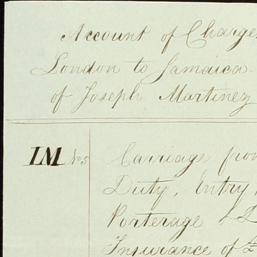 Account of Charge
London to Jamaica
of Joseph Martinez
IM No. 5
Carriage from
Duty, Entry,
Porterage &
Insurance of £